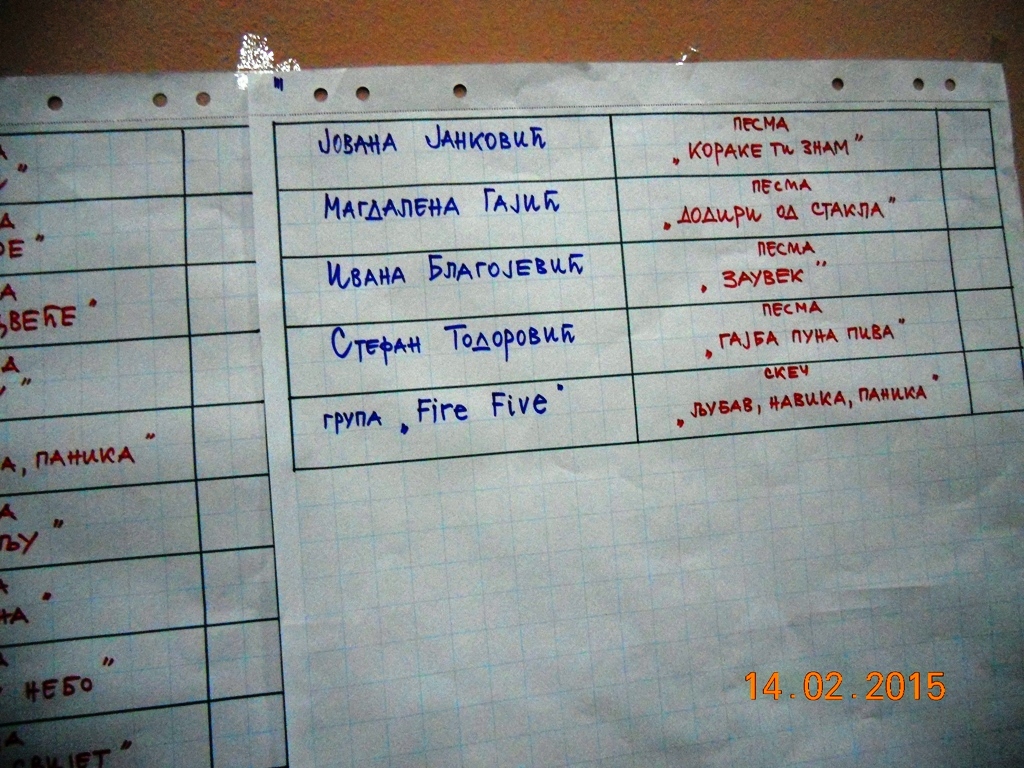 ВЕЋЕ"
А, ПАНИКА"
НЕБО"
ЈОВАНА ЈАНКОВИЋ
ПЕСМА
„КОРАКЕ ТИ ЗНАМ"
МАГДАЛЕНА ГАЈИЋ
ПЕСМА
„ДОДИРИ ОД СТАКЛА"
ИВАНА БЛАГОЈЕВИЋ
ПЕСМА
„ЗАУВЕК"
СТЕФАН ТОДОРОВИЋ
ПЕСМА
„ГАЈБА ПУНА ПИВА"
ГРУПА „Fire Five"
СКЕЧ
„ЉУБАВ, НАВИКА, ПАНИКА"
14.02.2015